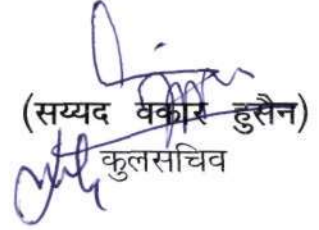 (सय्यद वकार हुसैन)
कुलसचिव